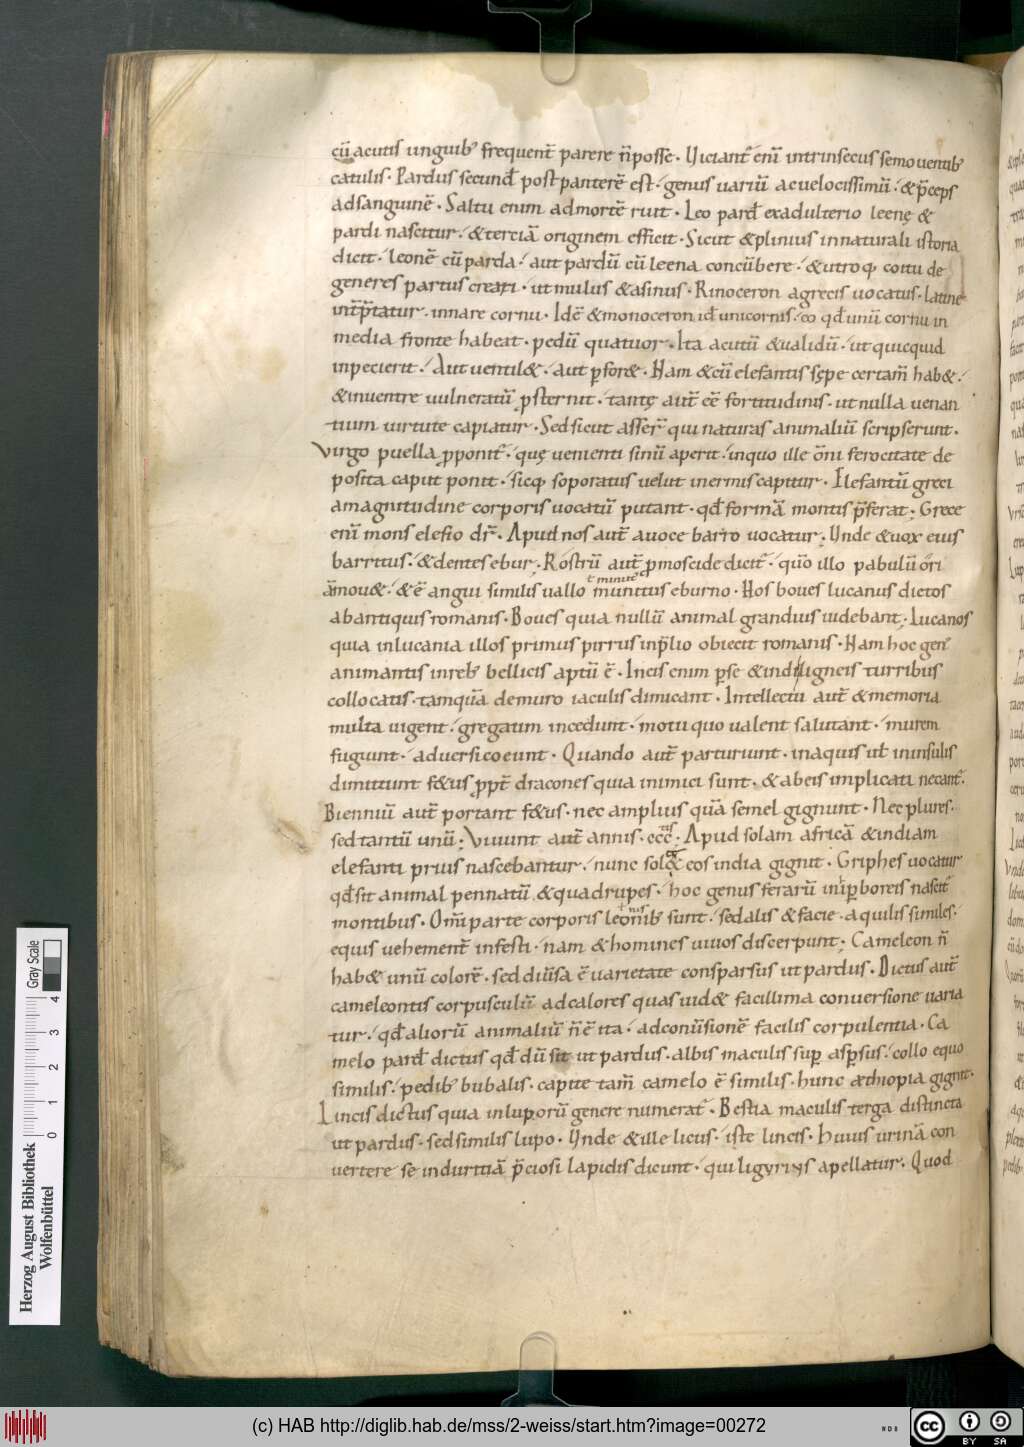 cū acutis unguib; frequent̄ parere n̄posse. Uiciant̄ enī intrinsecus semouentib;
catulis. Pardus secund̄ post panterē est. genus uariū ac uelocissimū. & p̄ceps
adsanguinē. Saltu enim admortē ruit. Leo pard̄ exadulterio leenę &
pardi nascitur. & terciā originem efficit. Sicut & plinius innaturali istoria
dicit. leonē cū parda. aut pardū cū leena concūbere. & utroq; coitu de
generes partus creari. ut mulus & asinus. Rinoceron agrecis uocatus. Latine
int̄p̄tatur. innare cornu. Idē & monoceron id̄ unicornis. eo qd̄ unū cornu in
media fronte habeat. pedū quatuor. Ita acutū & ualidū. ut quicquid
inpecierit. Aut uentil&. aut ꝑfor&. Nam & cū elefantis sępe certam̄ hab&.
& inuentre uulneratū ꝓsternit. tantę aut̄ eē fortitudinis. ut nulla uenan
tium uirtute capiatur. Sed sicut asser̄ qui naturas animaliū scripserunt.
Virgo puella ꝓponit̄. quę uenienti sinū aperit. inquo ille om̄i ferocitate de
posita caput ponit. sicq; soporatus uelut inermis capitur. Elefantū greci
amagnitudine corporis uocatū putant. qd̄ formā montis p̄ferat; Grece
enī mons elefio dr̄. Apud nos aut̄ auoce barro uocatur; Unde & uox eius
barritus. & dentes ebur; Rostrū aut̄ ꝓmoscide dicit̄. quō illo pabulū ori
am̄ou&. & ē angui similis uallo munitus eburno. Hos boues lucanus dictos
ł minutē
abantiquis romanis. Boues quia nullū animal grandius uidebant; Lucanos
quia inlucania illos primus pirrus inp̄lio obiecit romanis. Nam hoc gen;
animantis inreb; bellicis aptū ē. Incis enim ꝑse & indi ligneis turribus
collocatis. tamquā demuro iaculis dimicant. Intellectu aut̄ & memoria
multa uigent. gregatim incedunt. motu quo ualent salutant. murem
fugiunt. aduersi coeunt. Quando aut̄ parturiunt. inaquis ut̄ ininsulis
dimittunt f&us ꝓpt̄ dracones quia inimici sunt. & abeis implicati necant̄.
Bienniū aut̄ portant f&us. nec amplius quā semel gignunt. Nec plures.
sed tantū unū; Viuunt aut̄ annis. ccc; Apud solam africā & indiam
elefanti prius nascebantur. nunc sol& eos india gignit. Griphes uocatur
qd̄ sit animal pennatū & quadrupes. hoc genus ferarū in iꝑboreis nascit̄
montibus. Om̄i parte corporis leonib; sunt. sed alis & facie. aquilis similes.
equis uehement̄ infesti. nam & homines uiuos discerpunt; Cameleon n̄
hab& unū colorē. sed diu̅sa ē uarietate consparsus ut pardus. Dictus aut̄
cameleontis corpusculū adcalores quas uid& facillima conuersione uaria
tur. qd̄ aliorū animaliū n̄ ē ita. adconu̅sionē facilis corpulentia. Ca
melo pard̄ dictus qd̄ dū sit ut pardus. albis maculis suꝑ asꝑsus. collo equo
similis. pedib; bubalis. capite tam̄ camelo ē similis. hunc æthiopia gignit.
Lincis dictus quia inluporū genere numerat̄. Bestia maculis terga distincta
ut pardus. sed similis lupo. Unde & ille licus. iste lincis. Huius urinā con
uertere se induritiā p̄ciosi lapidis dicunt. qui ligyrius apellatur. Quod
Herzog August Bibliothek
Wolfenbüttel
0 1 2 3 4
Gray Scale
(c) HAB http://diglib.hab.de/mss/2-weiss/start.htm?image=00272
cc BY SA